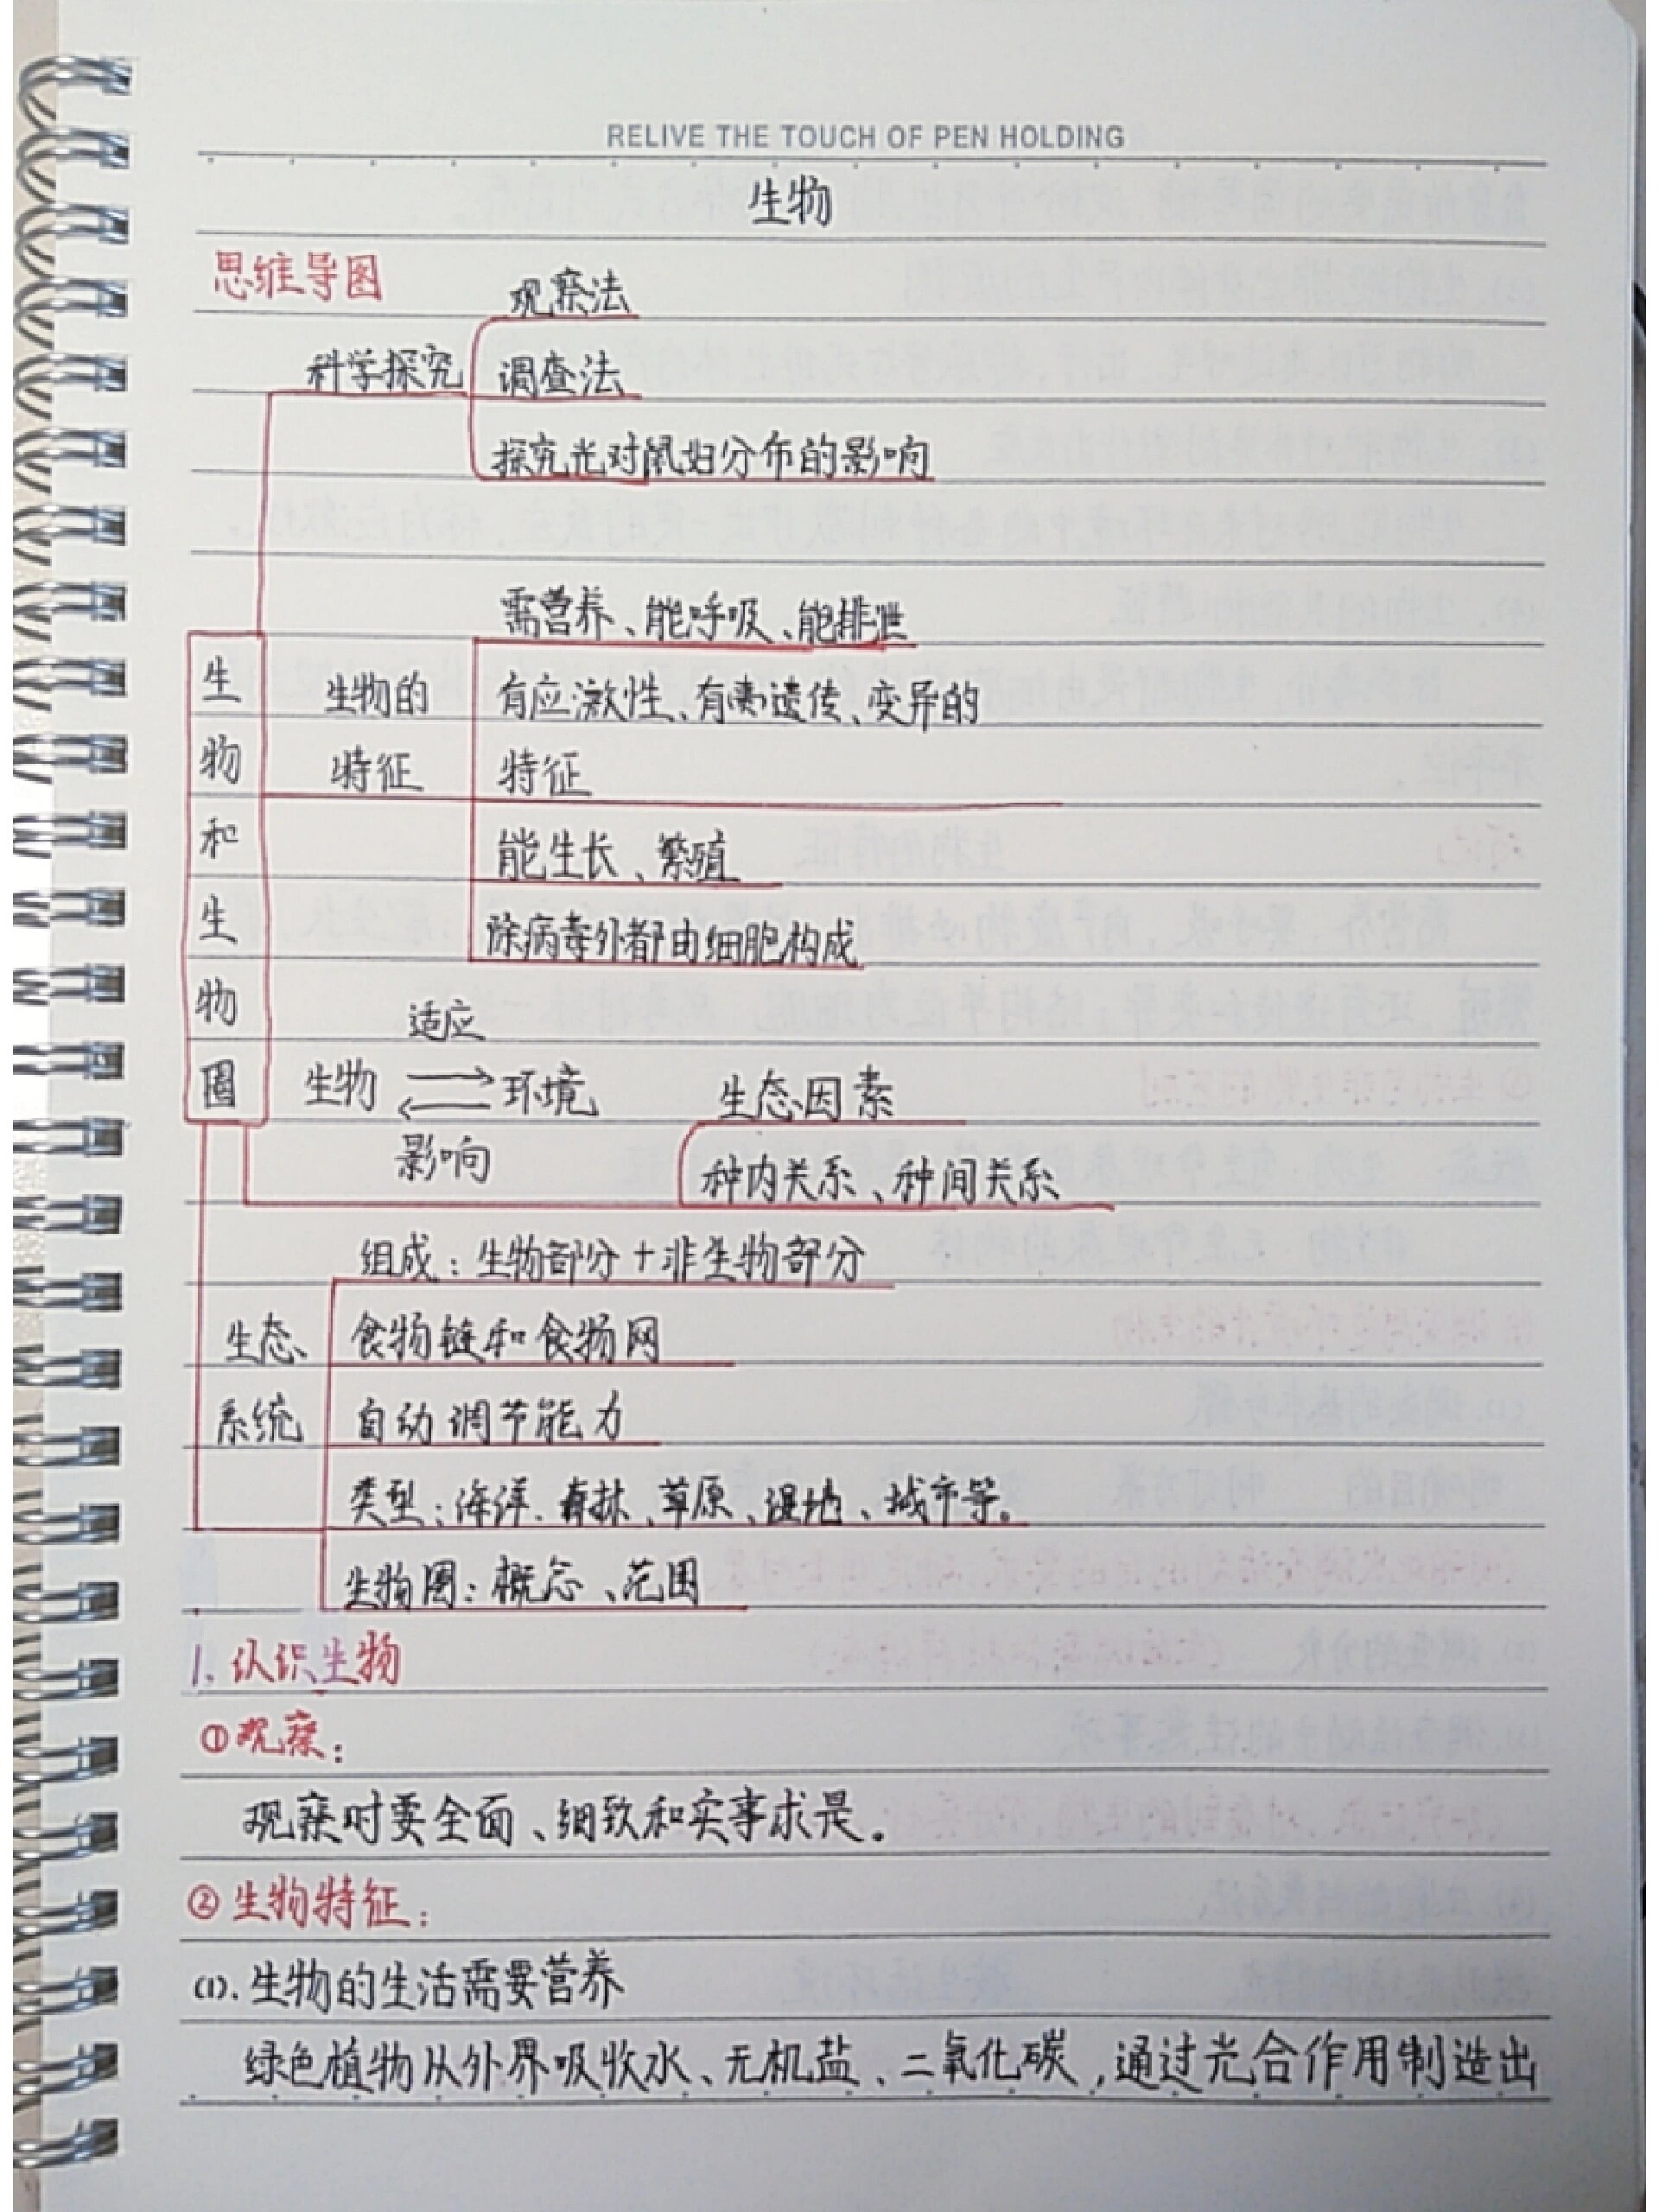 RELIVE THE TOUCH OF PEN HOLDING
生物
思维导图
观察法
科学探究 调查法
探究光对鼠妇分布的影响
生物和生物圈
需营养、能呼吸、能排泄
生物的 有应激性、有遗传、变异的
特征 特征
能生长、繁殖
除病毒外都由细胞构成
适应
生物 ⇌ 环境 生态因素
影响 种内关系、种间关系
组成：生物部分+非生物部分
生态 食物链和食物网
系统 自动调节能力
类型：海洋、森林、草原、湿地、城市等。
生物圈：概念、范围
1. 认识生物
①观察：
观察时要全面、细致和实事求是。
②生物特征：
(1). 生物的生活需要营养
绿色植物从外界吸收水、无机盐、二氧化碳，通过光合作用制造出